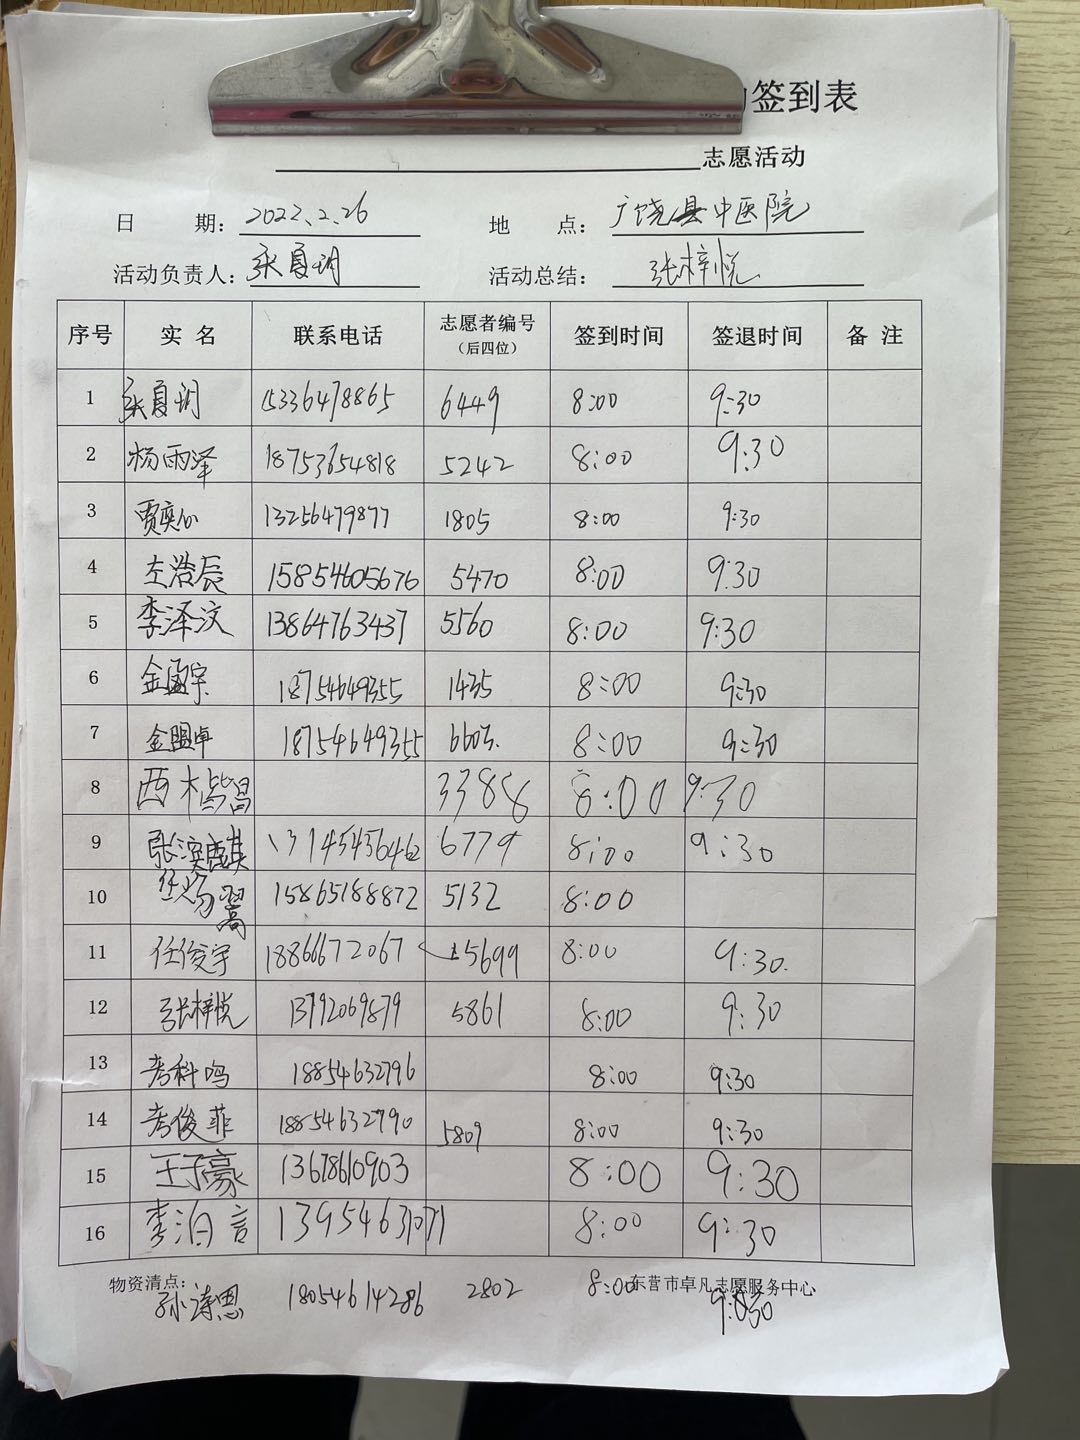 签到表
志愿活动
日 期: 2022.2.26 地 点: 广饶县中医院
活动负责人: 张夏玥 活动总结: 张梓悦
序号 实名 联系电话 志愿者编号(后四位) 签到时间 签退时间 备注
1 张夏玥 15336478865 6449 8:00 9:30
2 杨雨泽 18753654818 5242 8:00 9:30
3 贾奕心 13256479877 1805 8:00 9:30
4 左浩辰 15854605676 5470 8:00 9:30
5 李泽汶 13864763437 5560 8:00 9:30
6 金孟宇 18754649355 1435 8:00 9:30
7 金盟卓 18754649355 6603. 8:00 9:30
8 西 3388 8:00 9:30
9 张 6779 8:00 9:30
10 15865188872 5132 8:00
11 任俊宇 18866672067 5699 8:00 9:30.
12 张梓悦 13792069879 5861 8:00 9:30
13 科鸣 18854632796 8:00 9:30
14 俊菲 18854632790 5809 8:00 9:30
15 王子豪 13678610903 8:00 9:30
16 李泊言 13954631071 8:00 9:30
物资清点: 东营市卓凡志愿服务中心
孙诗思 18054614286 2802 8:00 9:30